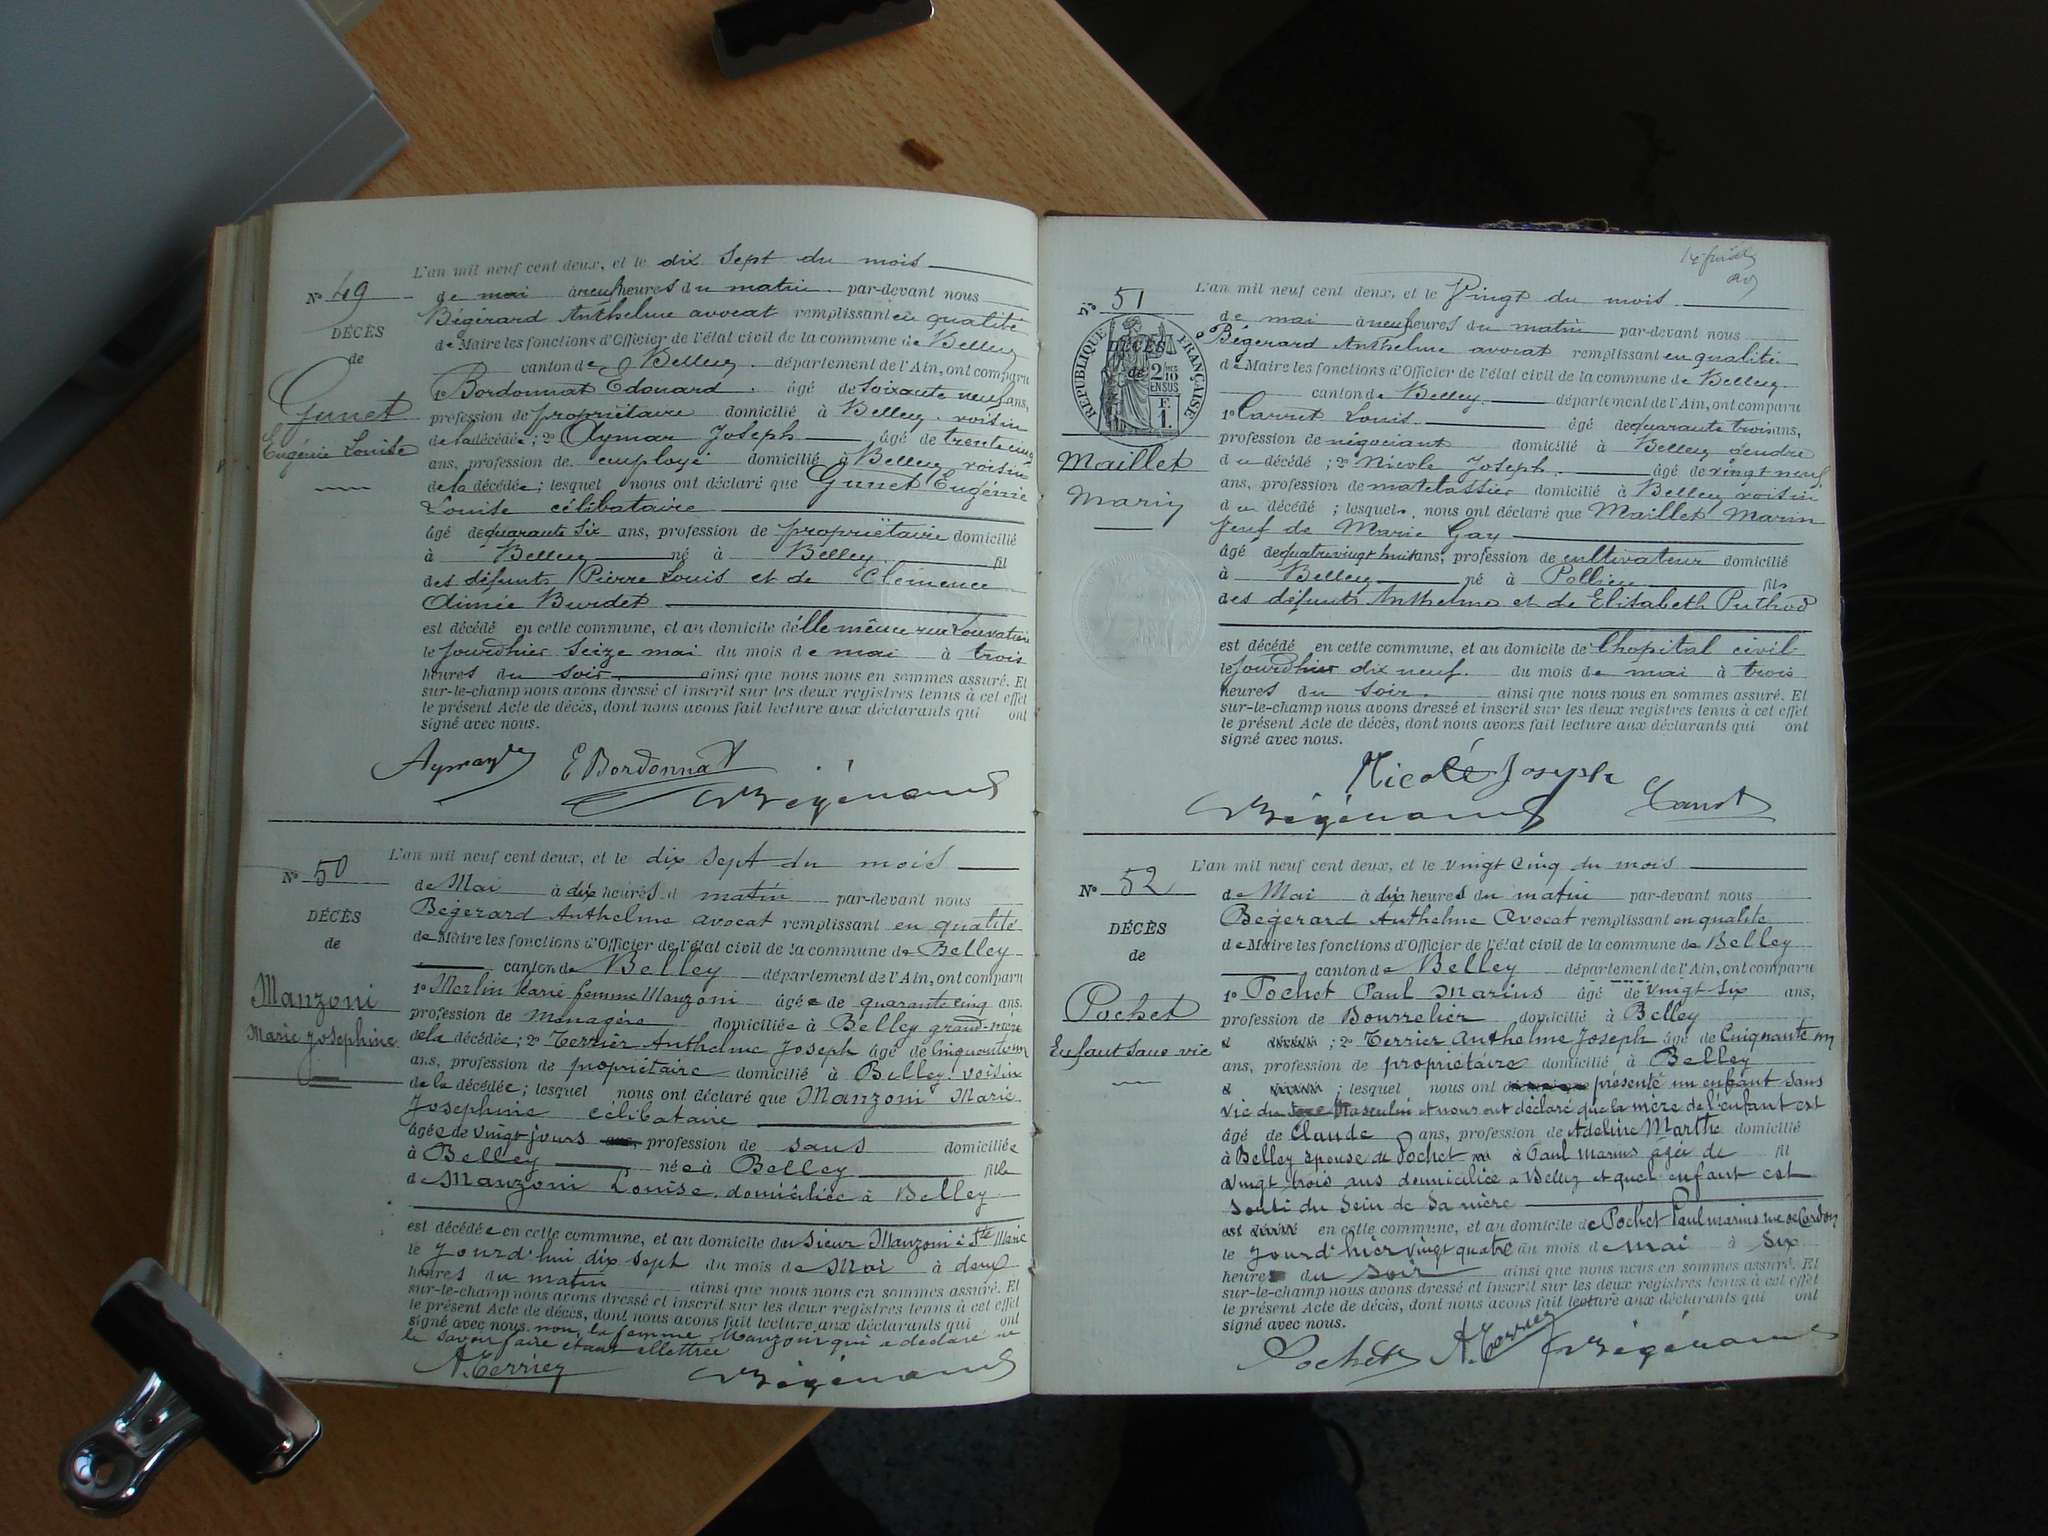 L'an mil neuf cent deux, et le dix sept du mois
N° 49
de mai à neuf heures du matin par-devant nous
Bégérard Anthelme avocat remplissant en qualité
DÉCÈS
de Maire les fonctions d'Officier de l'état civil de la commune de Belley
de
canton de Belley département de l'Ain, ont comparu
1° Bordonnat Edouard âgé de soixante neuf ans,
Gunet
profession de propriétaire domicilié à Belley voisin
Eugénie Louise
de la décédée; 2° Aymar Joseph âgé de trente cinq
ans, profession de employé domicilié à Belley voisin
de la décédée; lesquel nous ont déclaré que Gunet Eugénie
Louise célibataire
âgé de quarante six ans, profession de propriétaire domicilié
à Belley né à Belley fil
des défunts Pierre Louis et de Clémence
Aimée Burdet
est décédé en cette commune, et au domicile d'elle même rue
le jourdhier seize mai du mois de mai à trois
heures du soir ainsi que nous nous en sommes assuré. Et
sur-le-champ nous avons dressé et inscrit sur les deux registres tenus à cet effet
le présent Acte de décès, dont nous avons fait lecture aux déclarants qui ont
signé avec nous.
Aymar E Bordonnat
Bégérard
L'an mil neuf cent deux, et le dix sept du mois
N° 50
de Mai à dix heures d matin par-devant nous
DÉCÈS
Bégérard Anthelme avocat remplissant en qualité
de
de Maire les fonctions d'Officier de l'état civil de la commune de Belley
canton de Belley département de l'Ain, ont comparu
Manzoni
1° Merlin Marie femme Manzoni âgée de quarante cinq ans.
profession de Ménagère domiciliée à Belley grand-mère
Marie Josephine
de la décédée; 2° Terrier Anthelme Joseph âgé de Cinquante un
ans, profession de propriétaire domicilié à Belley voisin
de la décédée; lesquel nous ont déclaré que Manzoni Marie
Josephine célibataire
âgée de vingt jours ans, profession de sans domiciliée
à Belley née à Belley fille
de Manzoni Louise domiciliée à Belley
est décédée en cette commune, et au domicile du sieur Manzoni à Ste Marie
le jourd'hui dix sept du mois de Mai à deux
heures du matin ainsi que nous nous en sommes assuré. Et
sur-le-champ nous avons dressé et inscrit sur les deux registres tenus à cet effet
le présent Acte de décès, dont nous avons fait lecture aux déclarants qui ont
signé avec nous. non la femme Manzoni qui a déclaré ne
le savoir faire étant illettrée
A. Terrier Bégérard
L'an mil neuf cent deux, et le Vingt du mois
N° 51
de mai à neuf heures du matin par-devant nous
Bégérard Anthelme avocat remplissant en qualité
RÉPUBLIQUE FRANÇAISE
DÉCÈS
de
2/10 EN SUS
F. 1.
de Maire les fonctions d'Officier de l'état civil de la commune de Belley
canton de Belley département de l'Ain, ont comparu
1° Carret Louis âgé de quarante trois ans,
profession de négociant domicilié à Belley gendre
Maillet
du décédé; 2° Nicole Joseph âgé de vingt neuf
Marin
ans, profession de matelassier domicilié à Belley voisin
du décédé; lesquels nous ont déclaré que Maillet Marin
Veuf de Marie Gay
âgé de quatre vingt huit ans, profession de cultivateur domicilié
à Belley né à Pollieu fils
des défunts Anthelme et de Elisabeth Puthod
est décédé en cette commune, et au domicile de l'hopital civil
le jourdhier dix neuf du mois de mai à trois
heures du soir ainsi que nous nous en sommes assuré. Et
sur-le-champ nous avons dressé et inscrit sur les deux registres tenus à cet effet
le présent Acte de décès, dont nous avons fait lecture aux déclarants qui ont
signé avec nous.
Nicolé Joseph
Bégérard Carret
L'an mil neuf cent deux, et le vingt cinq du mois
N° 52
de Mai à dix heures du matin par-devant nous
DÉCÈS
Bégérard Anthelme Avocat remplissant en qualité
de
de Maire les fonctions d'Officier de l'état civil de la commune de Belley
canton de Belley département de l'Ain, ont comparu
Pochet
1° Pochet Paul Marius âgé de vingt six ans,
profession de Bourrelier domicilié à Belley
Enfant sans vie
; 2° Terrier Anthelme Joseph âgé de Cinquante un
ans, profession de propriétaire domicilié à Belley
; lesquel nous ont présenté un enfant sans
vie du sexe Masculin et nous ont déclaré que la mère de l'enfant est
âgé de Claude ans, profession de Adeline Marthe domicilié
à Belley épouse de Pochet né à Paul Marius âgée de fil
vingt trois ans domiciliée à Belley et quel enfant est
sorti du sein de sa mère
est décédé en cette commune, et au domicile de Pochet Paul marius rue de Cordon
le jourd'hier vingt quatre du mois de mai à six
heures du soir ainsi que nous nous en sommes assuré. Et
sur-le-champ nous avons dressé et inscrit sur les deux registres tenus à cet effet
le présent Acte de décès, dont nous avons fait lecture aux déclarants qui ont
signé avec nous.
Pochet A. Terrier Bégérard